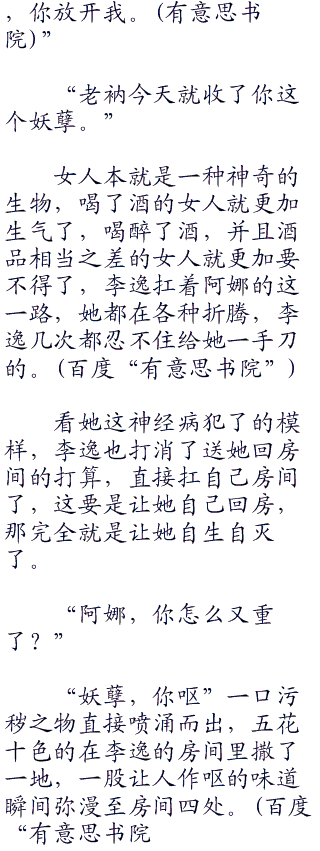 ，你放开我。(有意思书
院)”
“老衲今天就收了你这
个妖孽。”
女人本就是一种神奇的
生物，喝了酒的女人就更加
生气了，喝醉了酒，并且酒
品相当之差的女人就更加要
不得了，李逸扛着阿娜的这
一路，她都在各种折腾，李
逸几次都忍不住给她一手刀
的。(百度“有意思书院”)
看她这神经病犯了的模
样，李逸也打消了送她回房
间的打算，直接扛自己房间
了，这要是让她自己回房，
那完全就是让她自生自灭
了。
“阿娜，你怎么又重
了？”
“妖孽，你呕”一口污
秽之物直接喷涌而出，五花
十色的在李逸的房间里撒了
一地，一股让人作呕的味道
瞬间弥漫至房间四处。(百度
“有意思书院